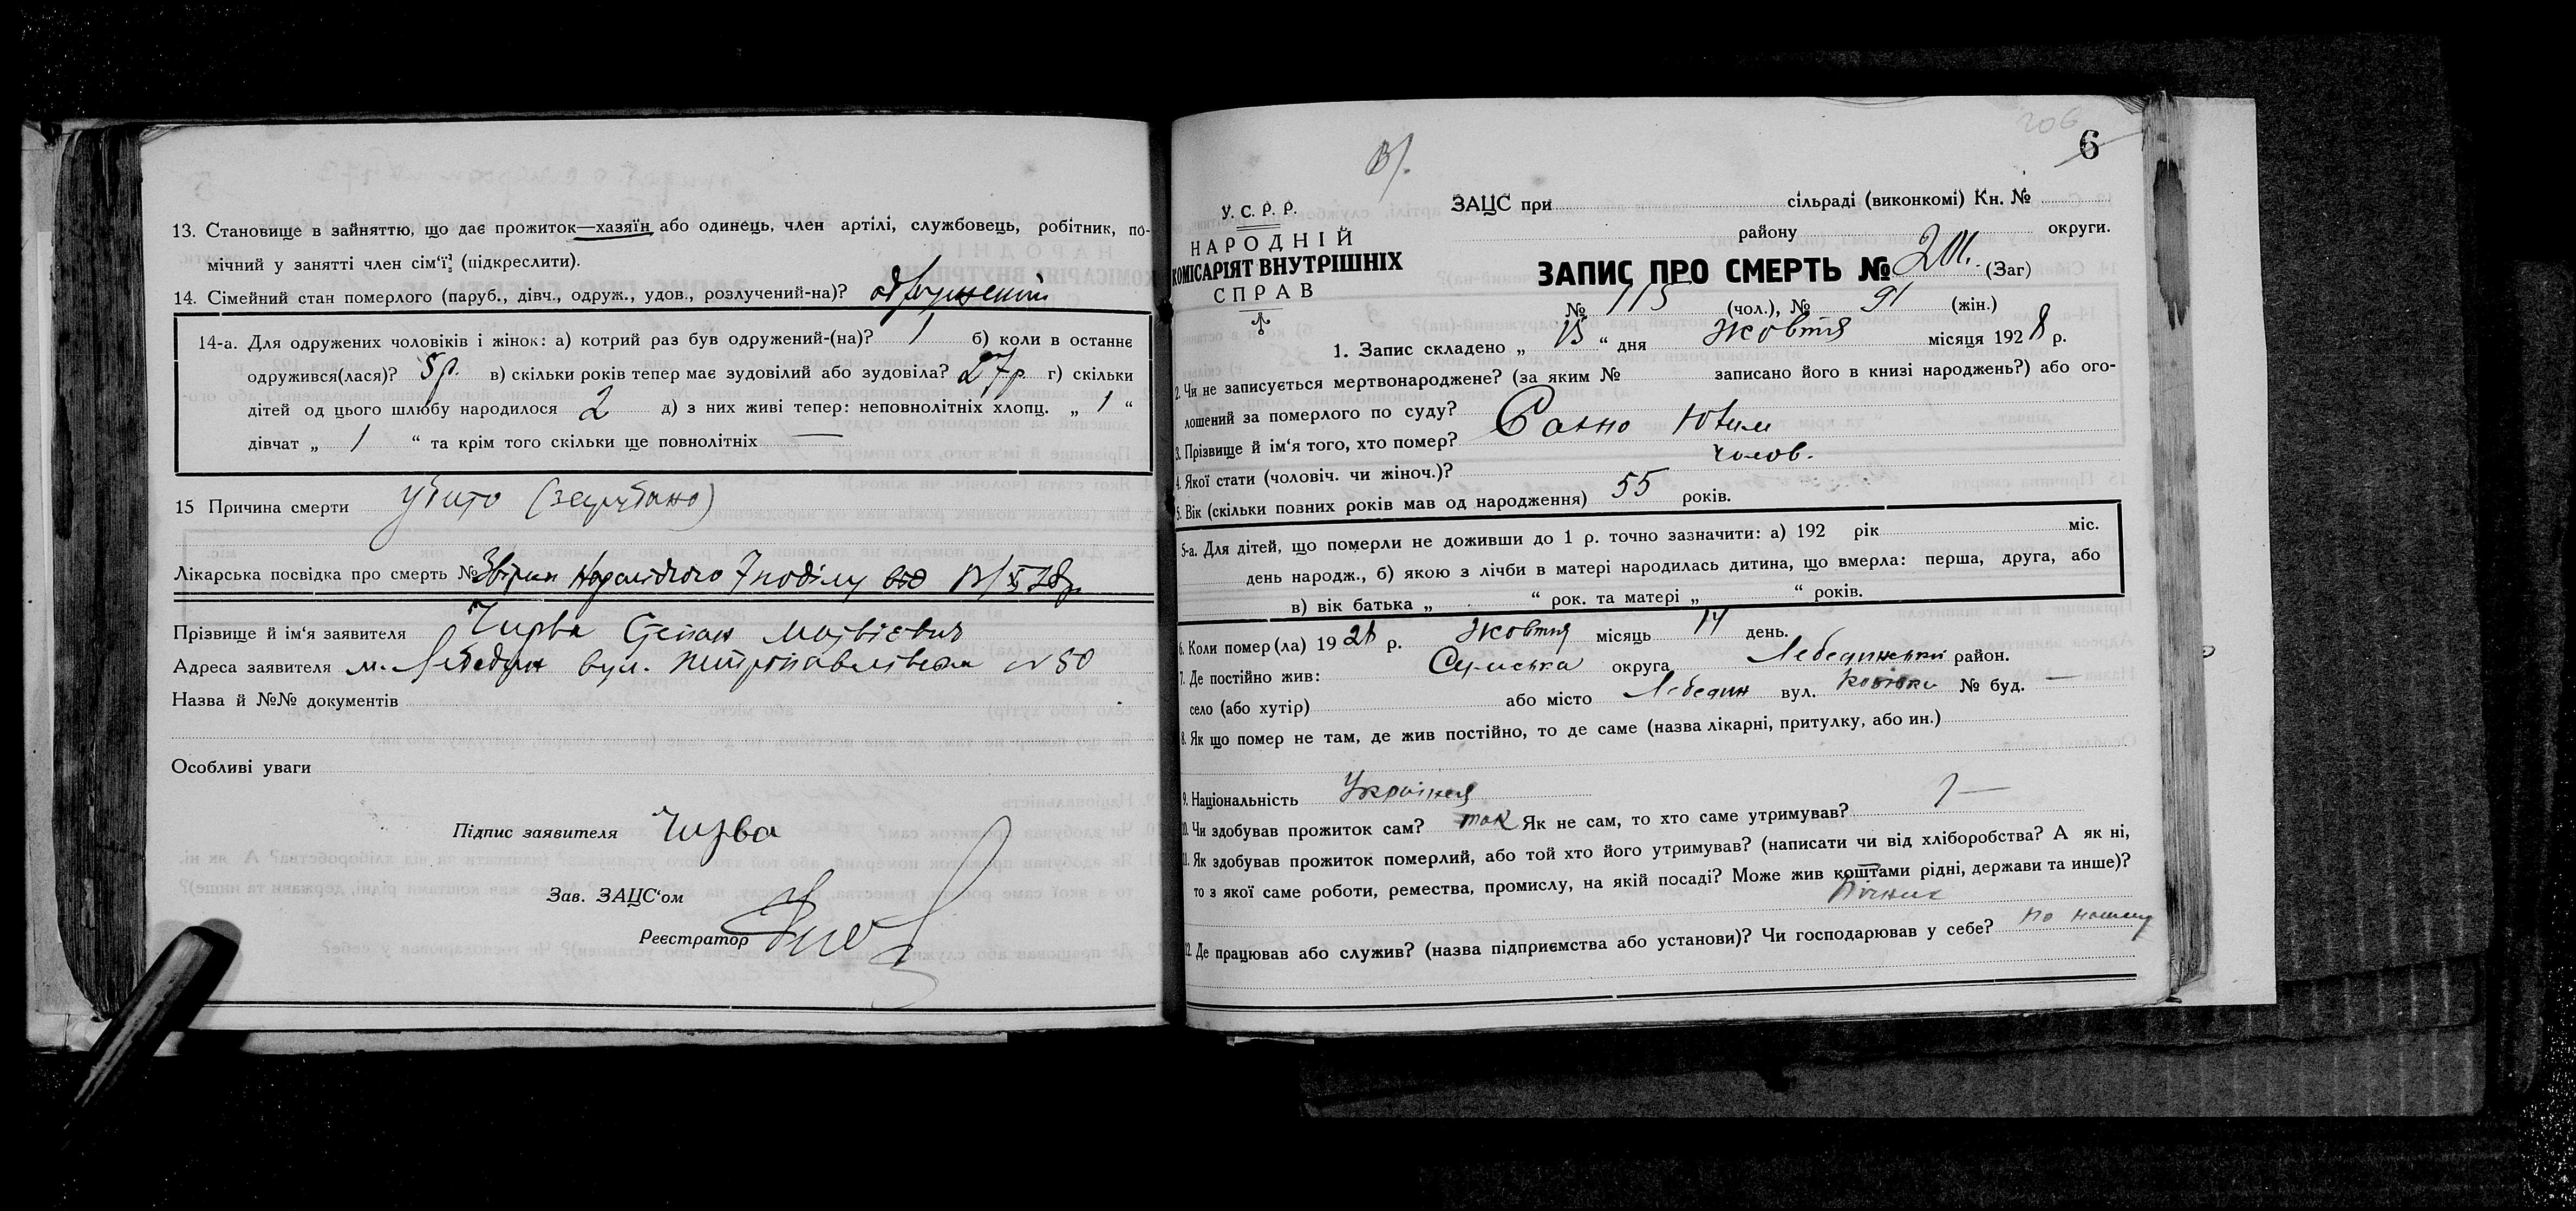 13. Становище в зайняттю, що дає прожиток—хазяїн або одинець, член артілі, службовець, робітник, по-
мічний у занятті член сім'ї? (підкреслити).
14. Сімейний стан померлого (паруб., дівч., одруж., удов., розлучений-на)? одружений
14-а. Для одружених чоловіків і жінок: а) котрий раз був одружений-(на)? 1 б) коли в останнє
одружився(лася)? 5 р. в) скільки років тепер має зудовілий або зудовіла? 27 р г) скільки
дітей од цього шлюбу народилося 2 д) з них живі тепер: неповнолітніх хлопц. „ 1 “
дівчат „ 1 “ та крім того скільки ще повнолітніх —
15 Причина смерти убито (зарубано)
Лікарська посвідка про смерть №
Прізвище й ім'я заявителя Чирва Степан Матвієвич
Адреса заявителя м. Лебедин вул. Петропавлівська № 80
Назва й №№ документів
Особливі уваги
Підпис заявителя Чирва
Зав. ЗАЦС'ом
Реєстратор
206
6
У. С. Р. Р.
НАРОДНІЙ
КОМІСАРІЯТ ВНУТРІШНІХ
СПРАВ
ЗАЦС при сільраді (виконкомі) Кн. №
району округи.
ЗАПИС ПРО СМЕРТЬ № (Заг)
№ 115 (чол.), № 91 (жін.)
1. Запис складено „ 15 “ дня Жовтня місяця 1928 р.
2. Чи не записується мертвонароджене? (за яким № записано його в книзі народжень?) або ого-
лошений за померлого по суду?
3. Прізвище й ім'я того, хто помер?
4. Якої стати (чоловіч. чи жіноч.)? чолов.
5. Вік (скільки повних років мав од народження) 55 років.
5-а. Для дітей, що померли не доживши до 1 р. точно зазначити: а) 192 рік міс.
день народж., б) якою з лічби в матері народилась дитина, що вмерла: перша, друга, або
в) вік батька „ “ рок. та матері „ “ років.
6. Коли помер(ла) 1928 р. Жовтня місяць 14 день.
7. Де постійно жив: Сумська округа Лебединський район.
село (або хутір) або місто Лебедин вул. № буд. —
8. Як що помер не там, де жив постійно, то де саме (назва лікарні, притулку, або ин.)
9. Національність
10. Чи здобував прожиток сам? так Як не сам, то хто саме утримував?
11. Як здобував прожиток померлий, або той хто його утримував? (написати чи від хліборобства? А як ні,
то з якої саме роботи, ремества, промислу, на якій посаді? Може жив коштами рідні, держави та инше)?
12. Де працював або служив? (назва підприємства або установи)? Чи господарював у себе? по найму